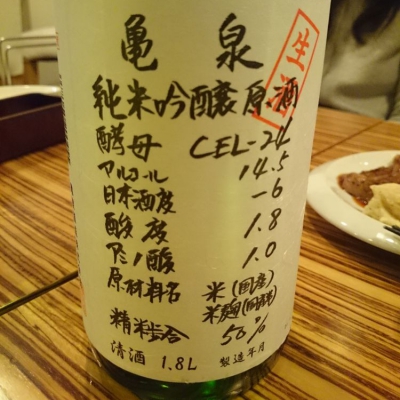 亀 泉
純米吟醸原酒
生酒
酵母 CEL-24
アルコール 14.5
日本酒度 -6
酸度 1.8
アミノ酸 1.0
原材料名 米(国産)
米麹(国産米)
精米歩合 50%
清酒 1.8L 製造年月